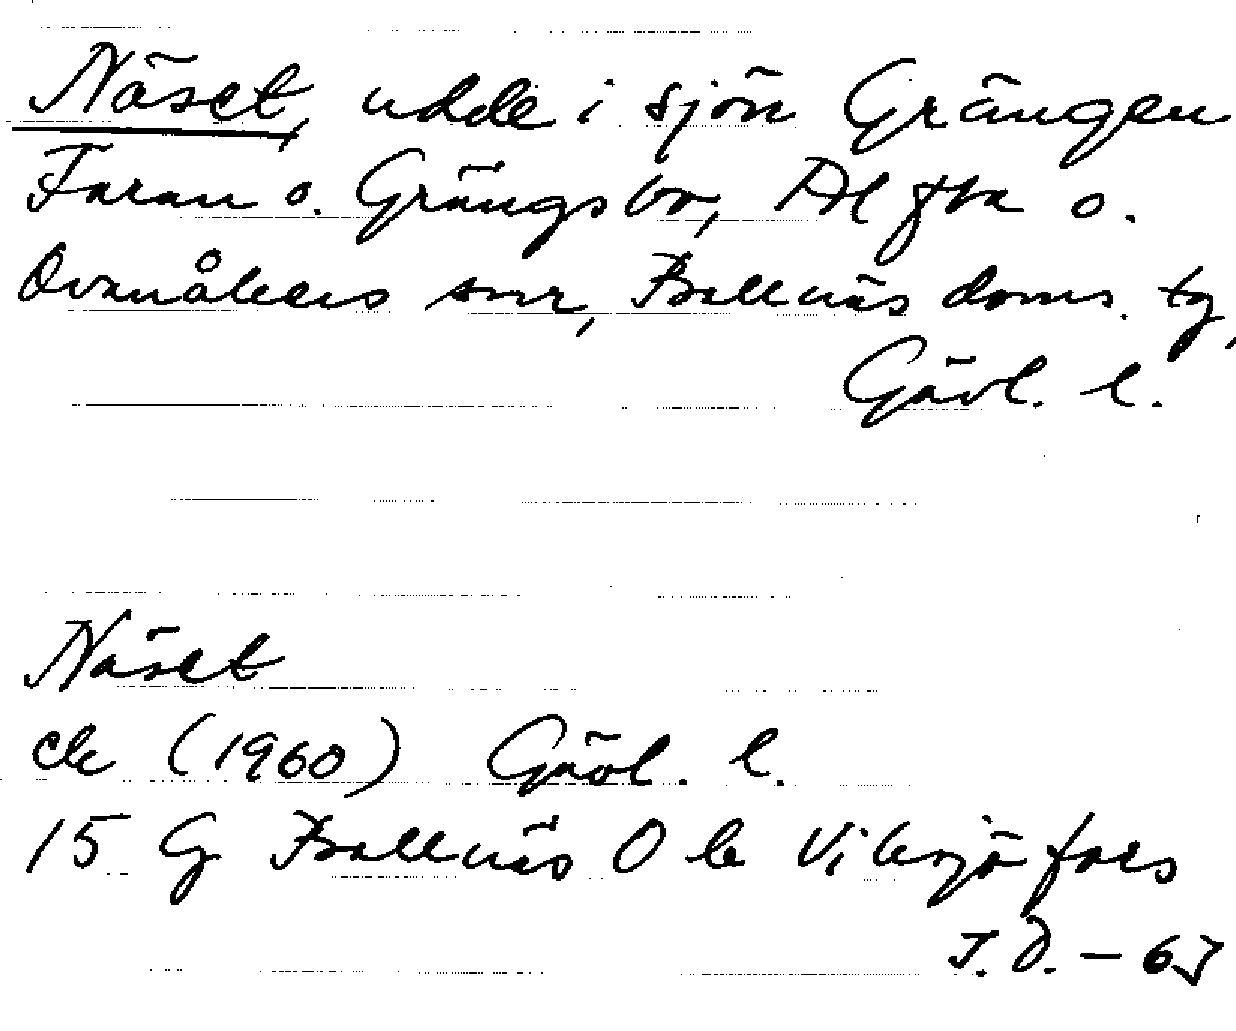 Näset, udde i sjön Grängen
Faran o. Grängsbo, Alfta o.
Ovanåkers snr, Bollnäs doms. tg,
Gävl. l.
Näset
ek (1960) Gävl. l.
15 G Bollnäs O k Viksjöfors
J.Ö. - 67